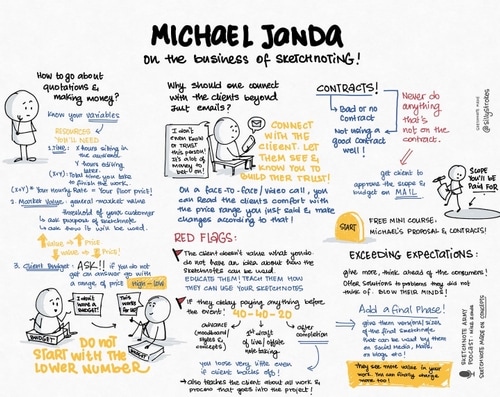 MICHAEL JANDA
on the business of SKETCHNOTING!
How to go about
quotations &
making money?
Know your variables
RESOURCES
YOU'LL NEED
1. Time: X hours sitting in
the audience
Y hours editing
later.
(X+Y) = Total time you take
to finish the work.
(X+Y) * Your Hourly Rate = Your floor price!
2. Market Value: general market value
threshold of your customer
→ ask purpose of sketchnote
→ ask how it will be used.
↑ value = ↑ Price
↓ value = ↓ Price
3. Client Budget: ASK!! if you do not
get an answer go with
a range of price High - low
I don't
have a
BUDGET!
This
works
for me!
BUDGET
DO NOT
START WITH THE
LOWER NUMBER
Why should one connect
with the clients beyond
Just emails?
I don't
even know
or TRUST
this person!
It's a lot of
money to
bet on!
CONNECT
WITH THE
CLIEENT. LET
THEM SEE &
KNOW YOU TO
BUILD THEIR TRUST!
On a FACE-TO-FACE/video call, you
can read the clients comfort with
the price range you just said & make
changes according to that!
RED FLAGS:
The client doesn't value what you do
do not have an idea about how the
sketchnotes can be used.
EDUCATE THEM! TEACH THEM HOW
THEY CAN USE YOUR SKETCHNOTES
If they delay paying anything before
the event.
40-40-20
advance
moodboard/
styles &
concepts
1st draft
of live/offsite
note taking
after
completion
you lose very little even
if client backs off!
→ also teaches the client about all work &
process that goes into the project!
CONTRACTS!
→ Bad or no
contract
Not using a
good contract
well!
Never do
anything
that's
not on the
contract.
get client to
approve the scope &
budget on
MAIL
SCOPE
YOU'LL BE
PAID FOR
START
FREE MINI COURSE
MICHAEL'S PROPOSAL & CONTRACTS!
EXCEEDING EXPECTATIONS:
give more, think ahead of the consumers!
Offer solutions to problems they did not
think of. BLOW THEIR MINDS!
Add a final Phase!
give them versions/sizes
of the final Sketchnote
that can be used by them
on Social Media, Mails,
on blogs etc!
They see more value in your
work. You can finally charge
more too!
@sillystrobes
SKETCHNOTE ARMY
PODCAST: MIKE ROHDE
SKETCHNOTE MADE ON CONCEPTS